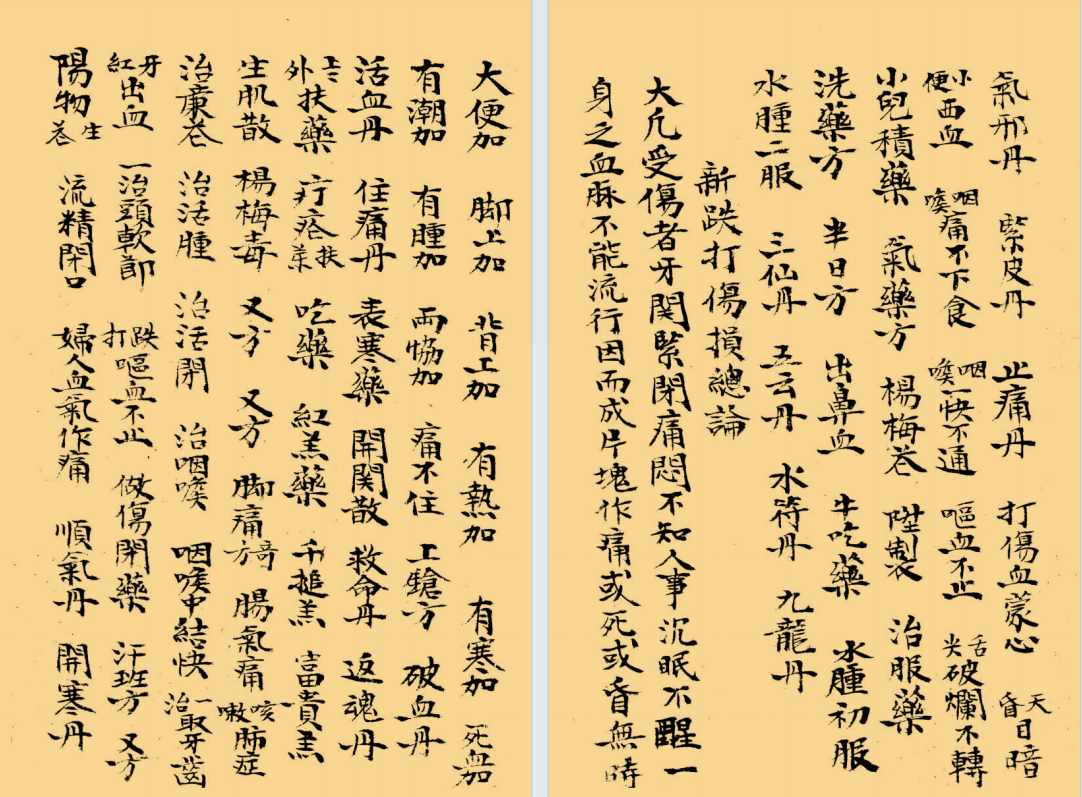 大便加 脚上加 背工加 有熱加 有寒加 死血加
有潮加 有腫加 両恊加 痛不住 工鎗方 破血丹
活血丹 住痛丹 表寒藥 開関散 救命丹 返魂丹
外扶藥 疔疮扶藥 吃藥 紅羔藥 千搥羔 富貴羔
生肌散 楊梅毒 又方 又方 脚痛奇方 腸氣痛 咳嗽肺症
治 治活腫 治活閉 治咽喉 咽喉中結快 一治取牙齒
牙紅出血 一治頭軟節 跌打嘔血不止 做傷開藥 汗班方 又方
陽物生 流精閉口 婦人血氣作痛 順氣丹 開寒丹
氣邪丹 緊皮丹 止痛丹 打傷血蒙心 天昏日暗
小便西血 咽喉痛不下食 咽喉一快不通 嘔血不止 舌尖破爛不轉
小兒積藥 氣藥方 楊梅卷 陞製 治服藥
洗藥方 半日方 出鼻血 牛吃藥 水腫初服
水腫二服 三仙丹 五云丹 水符丹 九龍丹
新跌打傷損總論
大凢受傷者牙関緊閉痛悶不知人事沉眠不醒一
身之血脉不能流行因而成片塊作痛或死或昏無時